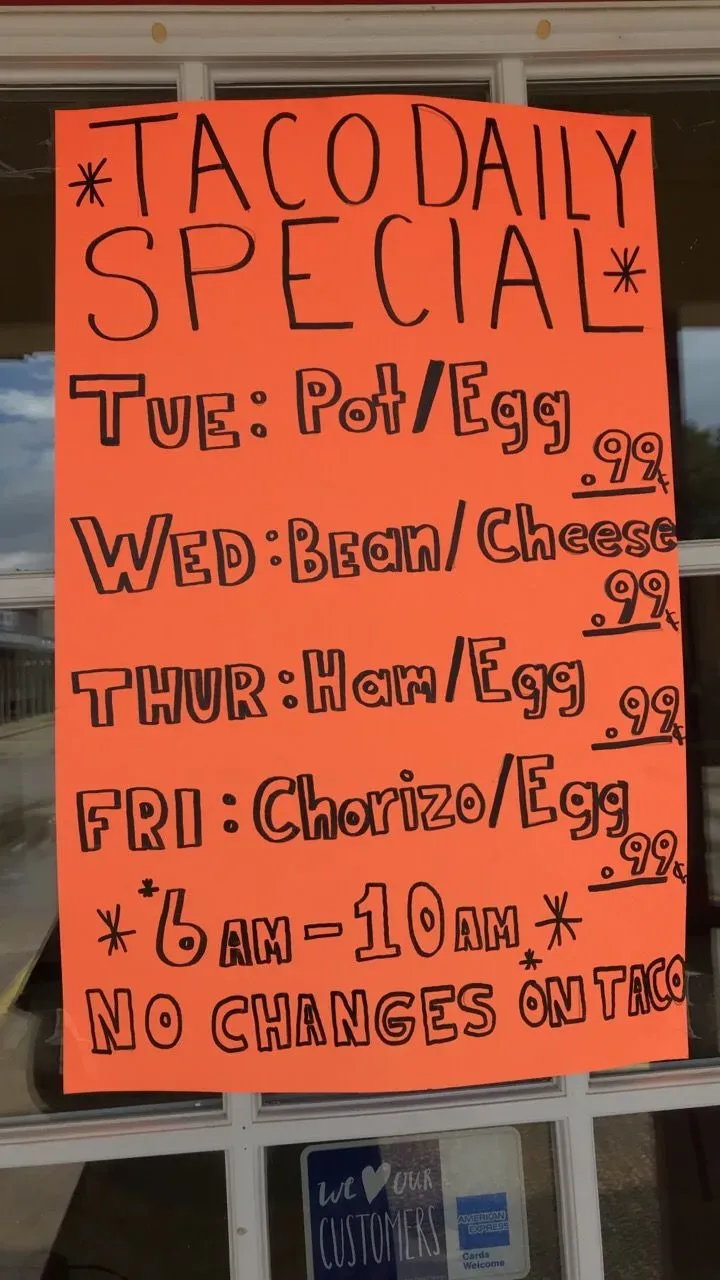 *TACO DAILY
SPECIAL*
TUE: Pot/Egg
.99¢
WED: BEan/Cheese
.99¢
THUR: Ham/Egg
.99¢
FRI: Chorizo/Egg
.99¢
* *6 AM - 10 AM *
NO CHANGES *ON TACO
we ♥ our
CUSTOMERS
AMERICAN
EXPRESS
Cards
Welcome